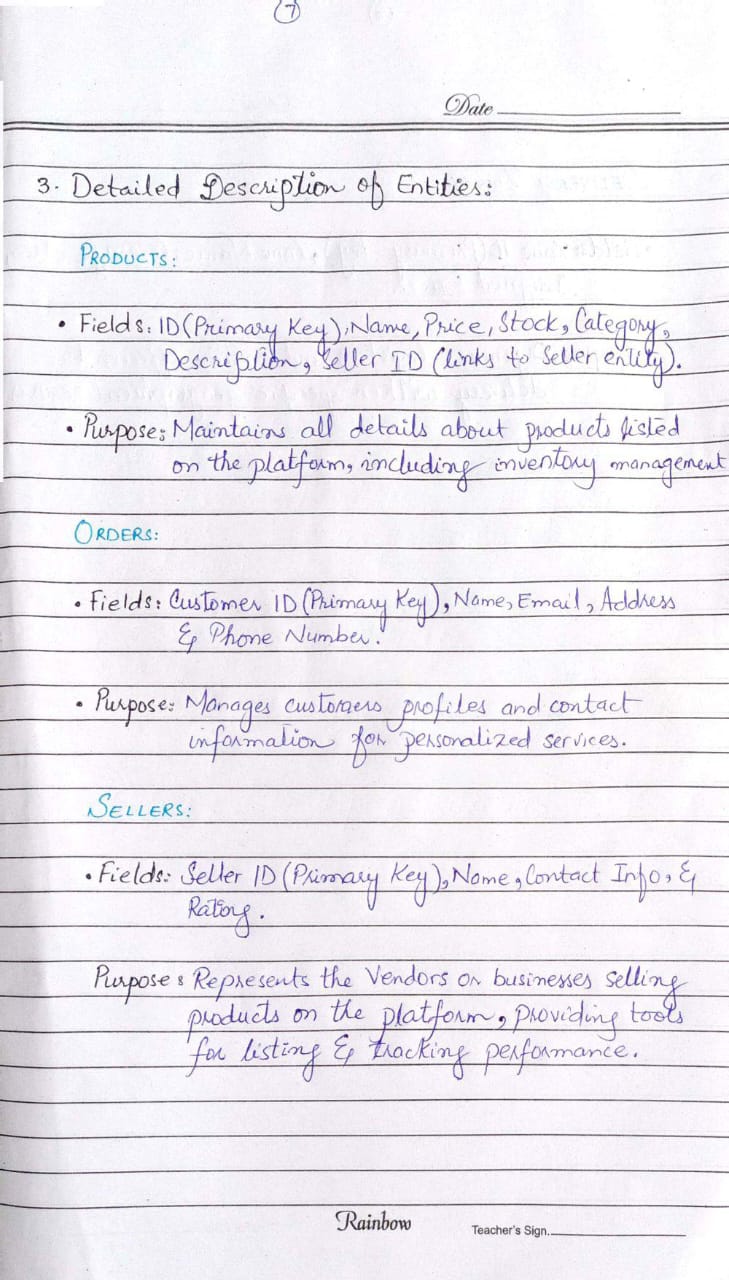 7
Date
3. Detailed Description of Entities:
PRODUCTS:
• Fields: ID (Primary Key), Name, Price, Stock, Category,
Description, Seller ID (links to Seller entity).
• Purpose: Maintains all details about products listed
on the platform, including inventory management
ORDERS:
• Fields: Customer ID (Primary Key), Name, Email, Address
& Phone Number.
• Purpose: Manages customers profiles and contact
information for personalized services.
SELLERS:
• Fields: Seller ID (Primary Key), Name, Contact Info, &
Rating.
Purpose: Represents the Vendors or businesses selling
products on the platform, providing tools
for listing & tracking performance.
Rainbow
Teacher's Sign.